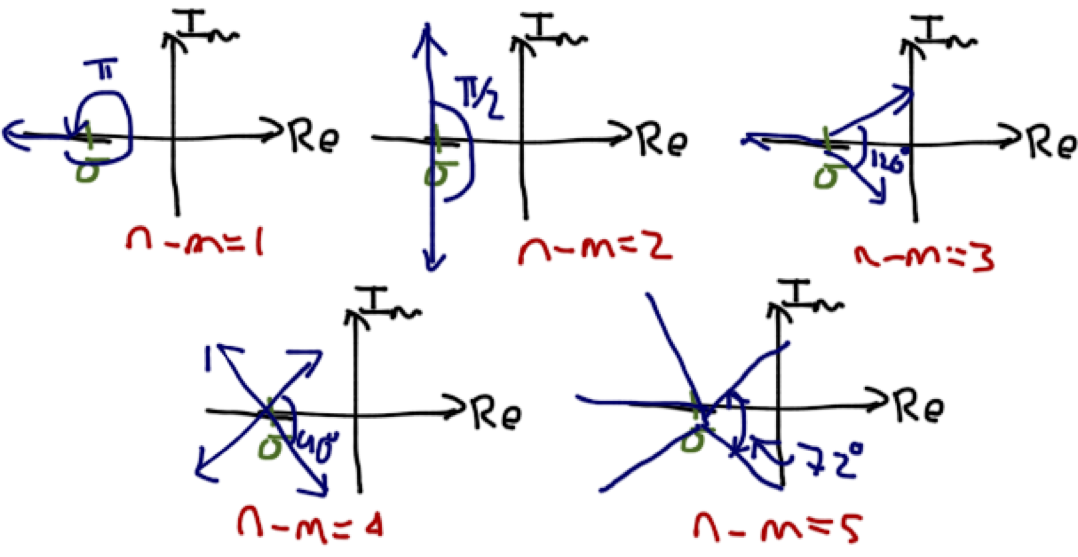 Im
π
Re
σ
n-m=1
Im
π/2
Re
σ
n-m=2
Im
120°
Re
σ
n-m=3
Im
Re
σ
90°
n-m=4
Im
Re
σ
72°
n-m=5